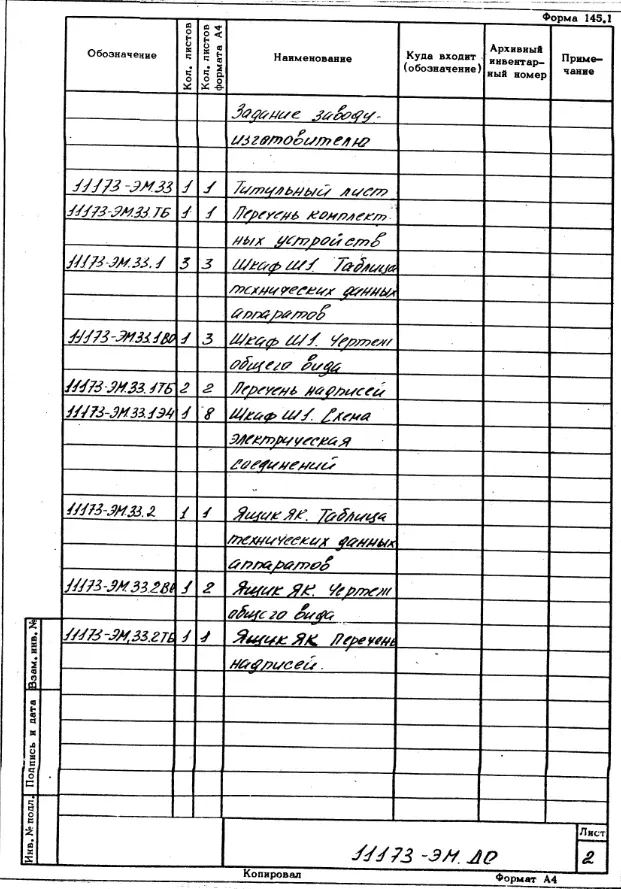 Форма 145.1
Обозначение Кол. листов Кол. листов формата А4 Наименование Куда входит (обозначение) Архивный инвентарный номер Примечание
Задание заводу-
изготовителю
11173-ЭМ.33 1 1 Титульный лист
11173-ЭМ.33.ТБ 1 1 Перечень комплект
ных устройств
11173-ЭМ.33.1 3 3 Шкаф Ш1. Таблица
технических данных
аппаратов
11173-ЭМ33.1ВО 1 3 Шкаф Ш1. Чертеж
общего вида
11173-ЭМ.33.1ТБ 2 2 Перечень надписей
11173-ЭМ.33.1Э4 1 8 Шкаф Ш1. Схема
электрическая
соединений
11173-ЭМ.33.2 1 1 Ящик ЯК. Таблица
технических данных
аппаратов
11173-ЭМ.33.2ВО 1 2 Ящик ЯК. Чертеж
общего вида
11173-ЭМ.33.2ТБ 1 1 Ящик ЯК Перечень
надписей.
Взам. инв. №
Подпись и дата
Инв. № подл.
11173-ЭМ.ДО
Лист
2
Копировал Формат А4